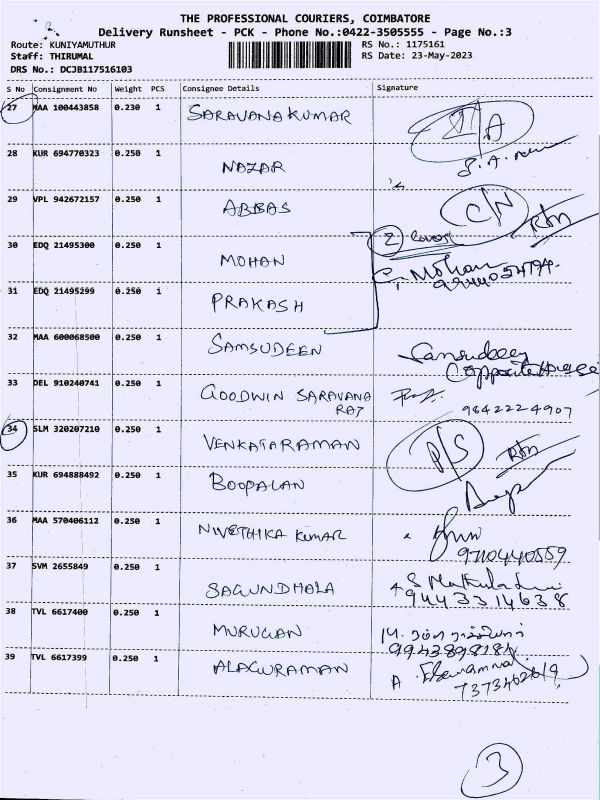 THE PROFESSIONAL COURIERS, COIMBATORE
Delivery Runsheet - PCK - Phone No.:0422-3505555 - Page No.:3
Route: KUNIYAMUTHUR
RS No.: 1175161
Staff: THIRUMAL
RS Date: 23-May-2023
DRS No.: DCJB117516103
S No Consignment No Weight PCS Consignee Details Signature
27 MAA 100443858 0.230 1 SARAVANA KUMAR
28 KUR 694770323 0.250 1 NAZAR
29 VPL 942672157 0.250 1 ABBAS C/N Rtn
30 EDQ 21495300 0.250 1 MOHAN 2 cover
C. Mohan
31 EDQ 21495299 0.250 1 PRAKASH
32 MAA 600068500 0.250 1 SAMSUDEEN Samsudeen
Opposite House
33 DEL 910240741 0.250 1 GOODWIN SARAVANA RAJ 9842224907
34 SLM 320207210 0.250 1 VENKATARAMAN D/S Rtn
35 KUR 694888492 0.250 1 BOOPALAN
36 MAA 570406112 0.250 1 NIVETHIKA KUMAR
9710440559
37 SVM 2655849 0.250 1 SAGUNDHALA
9443314638
38 TVL 6617400 0.250 1 MURUGAN
39 TVL 6617399 0.250 1 ALAGURAMAN
3